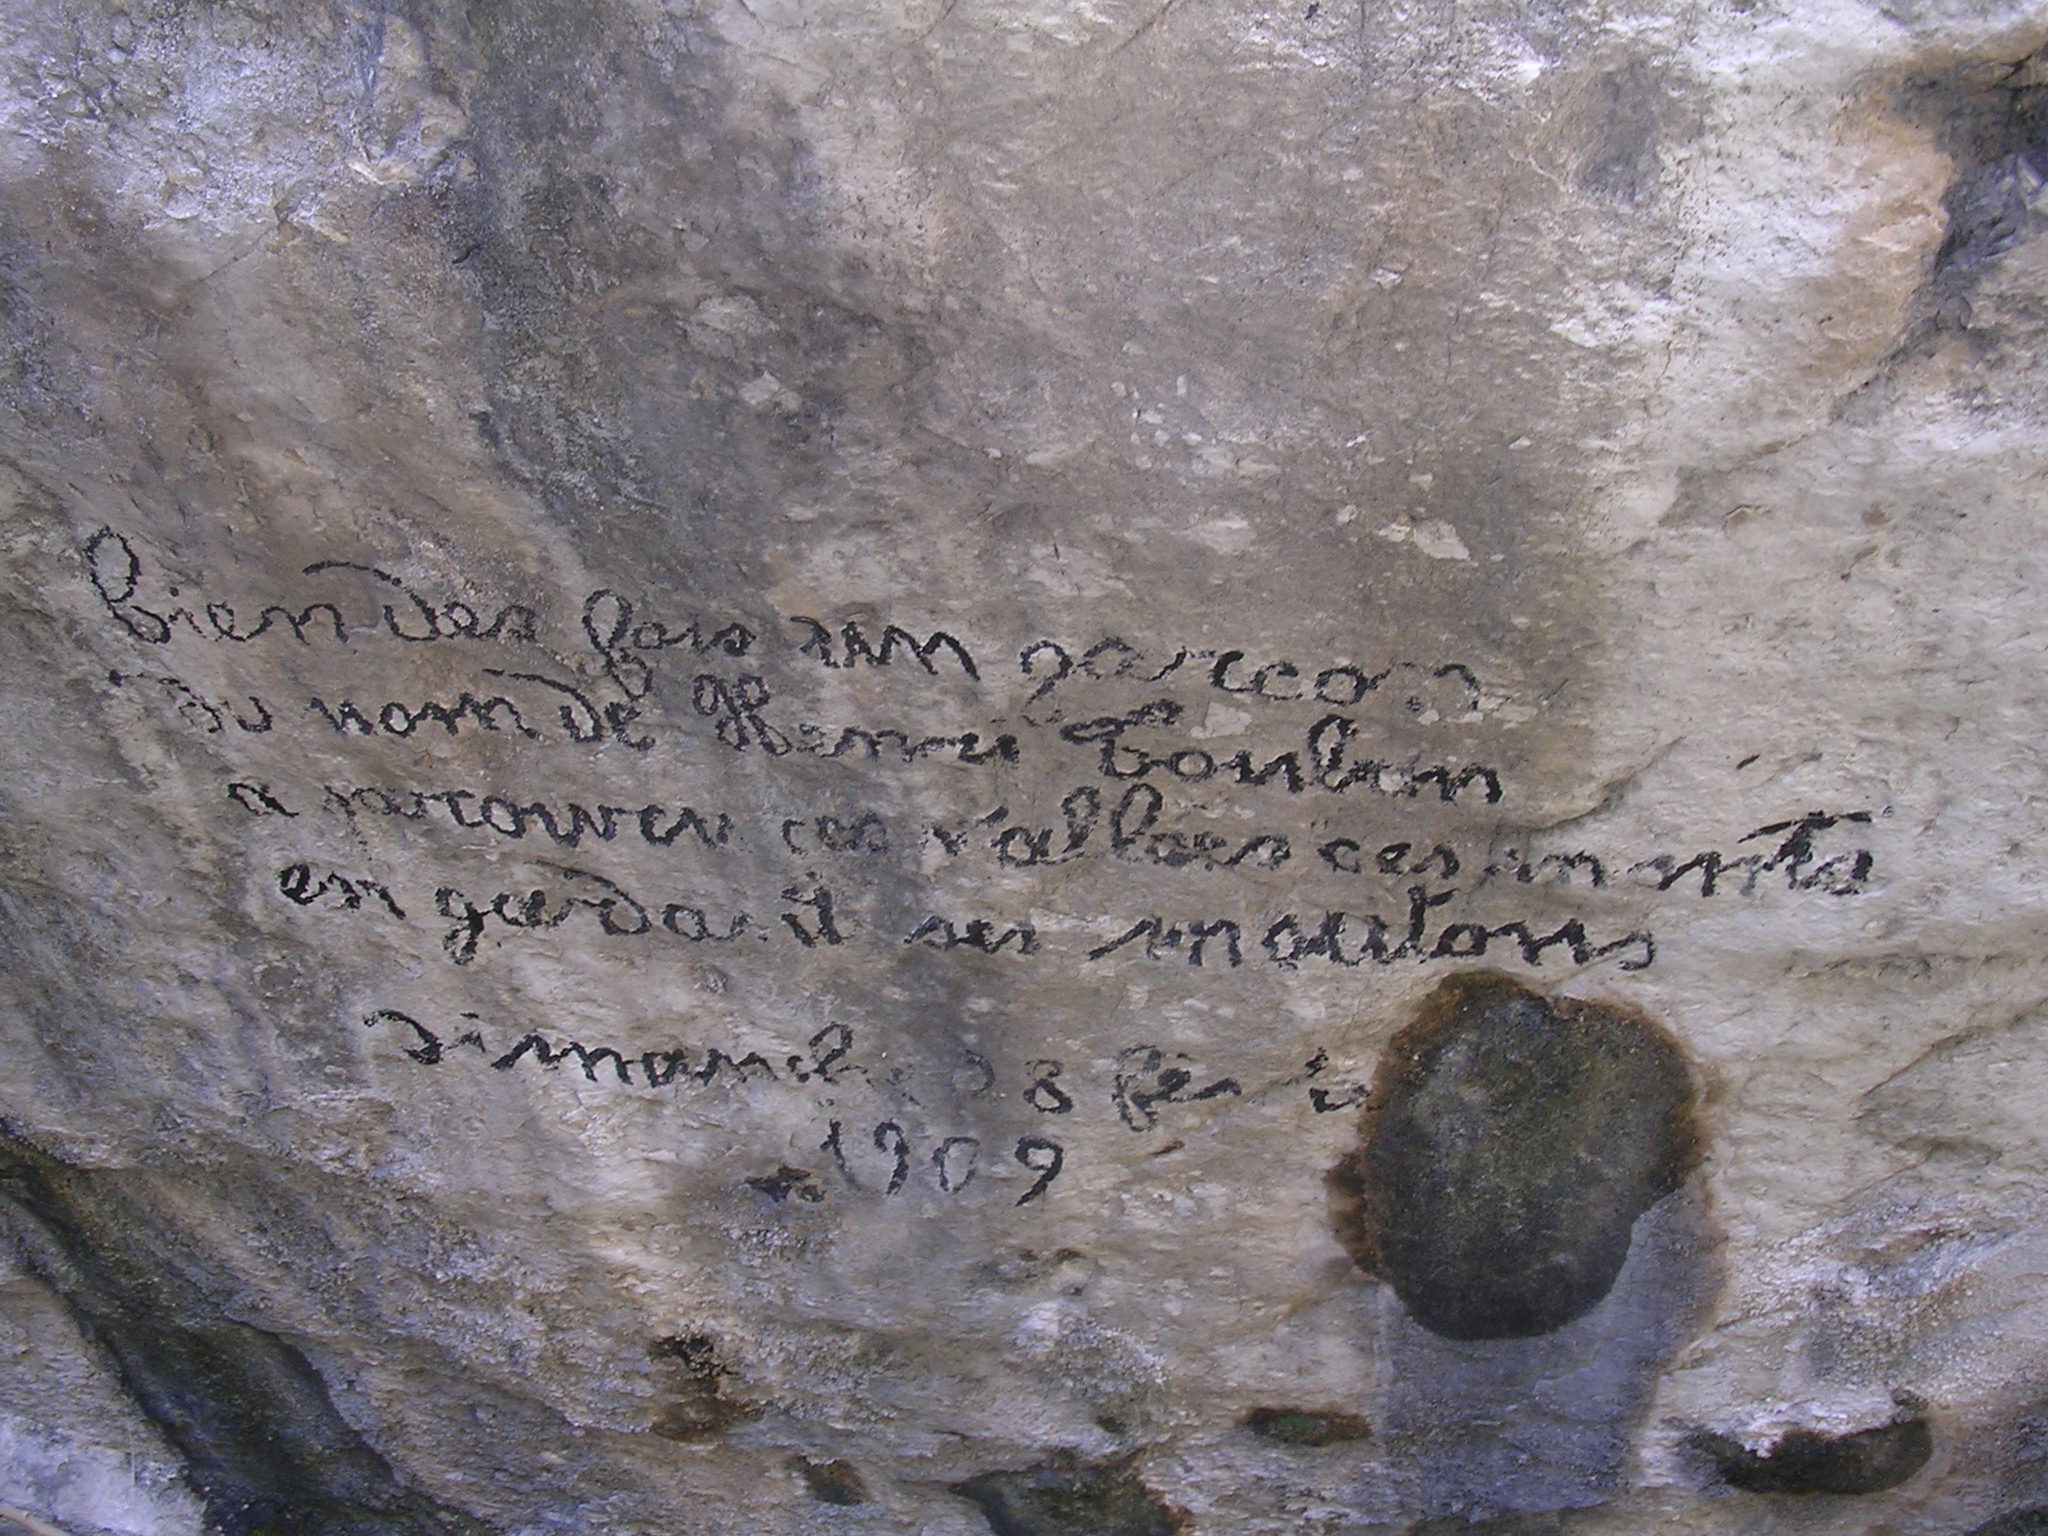 bien des fois un garcon
du nom de Henri Toulon
a parcouru ces vallons ces monts
en gardant ses moutons
dimanche 28 fév
1909